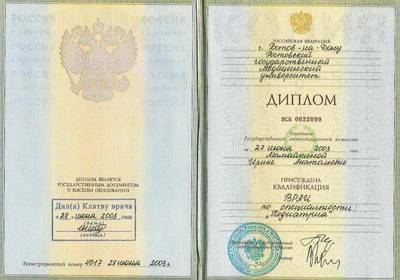 ДИПЛОМ ЯВЛЯЕТСЯ
ГОСУДАРСТВЕННЫМ ДОКУМЕНТОМ
О ВЫСШЕМ ОБРАЗОВАНИИ
Дал(а) Клятву врача
«28» июня 2003 года
(подпись)
Регистрационный номер 4017 28 июня 2003 г.
РОССИЙСКАЯ ФЕДЕРАЦИЯ
г. Ростов-на-Дону
Ростовский
государственный
Медицинский
университет
ДИПЛОМ
ВСБ 0622099
Решением
Государственной аттестационной комиссии
от 27 июня 2003 года
Ирине Анатольевне
ПРИСУЖДЕНА
КВАЛИФИКАЦИЯ
ВРАЧ
по специальности:
„Педиатрия"